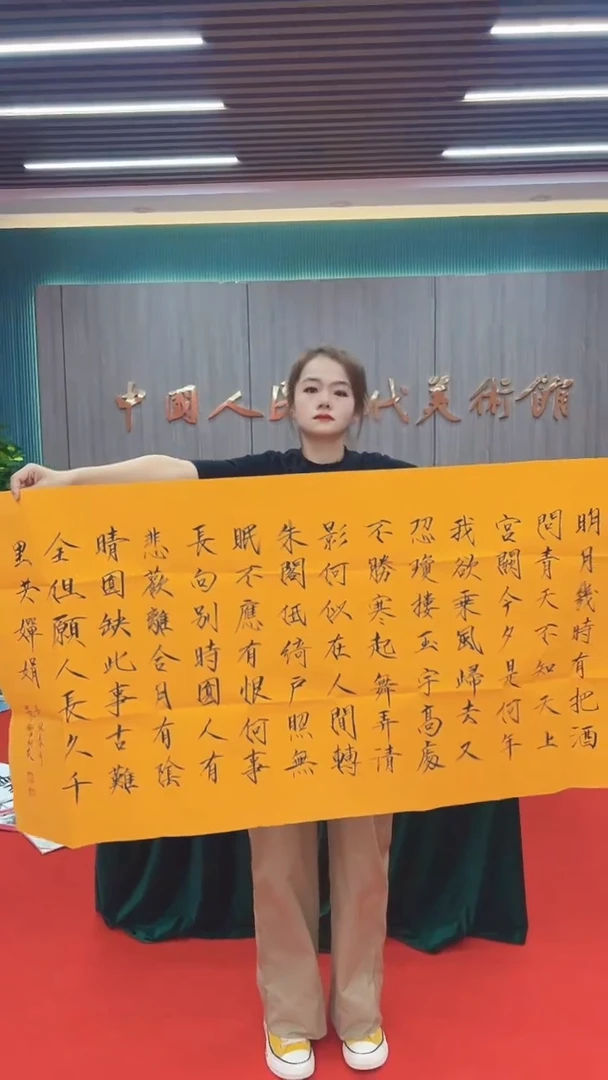 中國人民代美術館
明月幾時有把酒
問青天不知天上
宮闕今夕是何年
我欲乘風歸去又
恐瓊樓玉宇高處
不勝寒起舞弄清
影何似在人間轉
朱閣低綺戶照無
眠不應有恨何事
長向別時圓人有
悲歡離合月有陰
晴圓缺此事古難
全但願人長久千
里共嬋娟